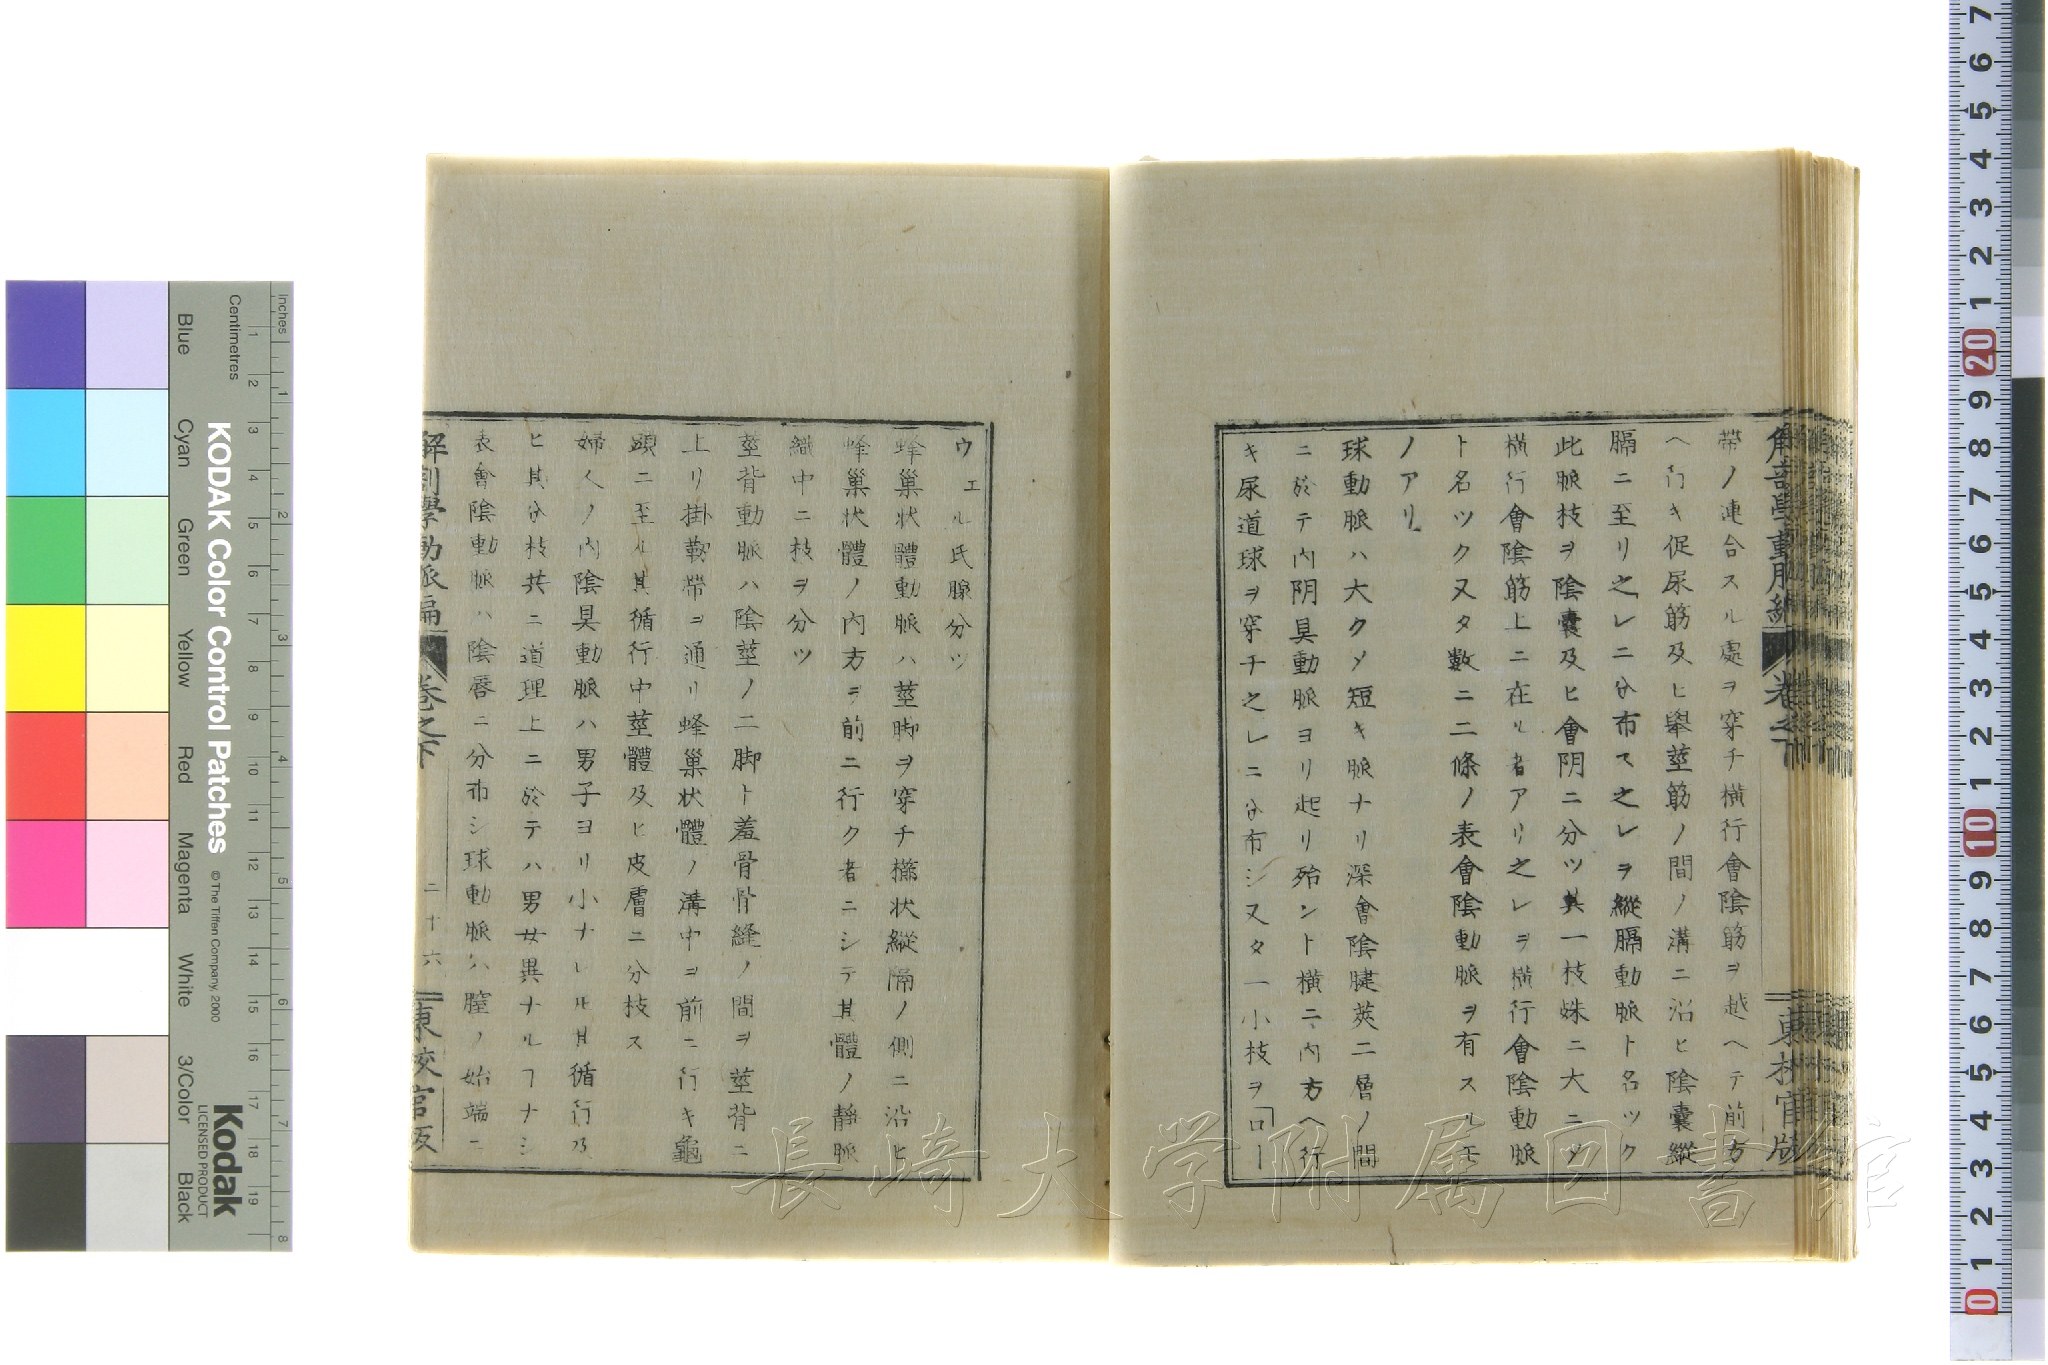 帶ノ連合スル處ヲ穿チ橫行會陰筋ヲ越ヘテ前方
ヘ行キ促尿筋及ヒ擧莖筋ノ間ノ溝ニ沿ヒ陰囊縱
膈ニ至リ之レニ分布ス之レヲ縱膈動脈ト名ツク
此脈枝ヲ陰囊及ヒ會阴ニ分ツ其一枝姝ニ大ニメ
橫行會陰筋上ニ在ル者アリ之レヲ橫行會陰動脈
ト名ツク又タ數ニ二條ノ表會陰動脈ヲ有スルモ
ノアリ
球動脈ハ大クメ短キ脈ナリ深會陰腱莢二層ノ間
ニ於テ内阴具動脈ヨリ起リ殆ント橫ニ内方ヘ行
キ尿道球ヲ穿チ之レニ分布シ又タ一小枝ヲ「コー
ウェル氏腺分ツ
蜂巢状體動脈ハ莖脚ヲ穿チ櫛状縱隔ノ側ニ沿ヒ
蜂巢状體ノ内方ヲ前ニ行ク者ニシテ其體ノ靜脈
織中ニ枝ヲ分ツ
莖背動脈ハ陰莖ノ二脚ト羞骨骨縫ノ間ヲ莖背ニ
上リ掛鞦帶ヲ通リ蜂巢状體ノ溝中ヲ前ニ行キ龜
頭ニ至ル其循行中莖體及ヒ皮膚ニ分枝ス
婦人ノ内陰具動脈ハ男子ヨリ小ナレ𪜈其循行及
ヒ其分枝共ニ道理上ニ於テハ男女異ナルヿナシ
表會陰動脈ハ陰唇ニ分布シ球動脈ハ膣ノ始端ニ
解剖學動脈編 卷之下 二十六 東校官版
解剖學動脈編 卷之下 東校官版
長崎大学附属図書館
KODAK Color Control Patches
© The Tiffen Company, 2000
Kodak
LICENSED PRODUCT
Inches
Centimetres
Blue Cyan Green Yellow Red Magenta White 3/Color Black